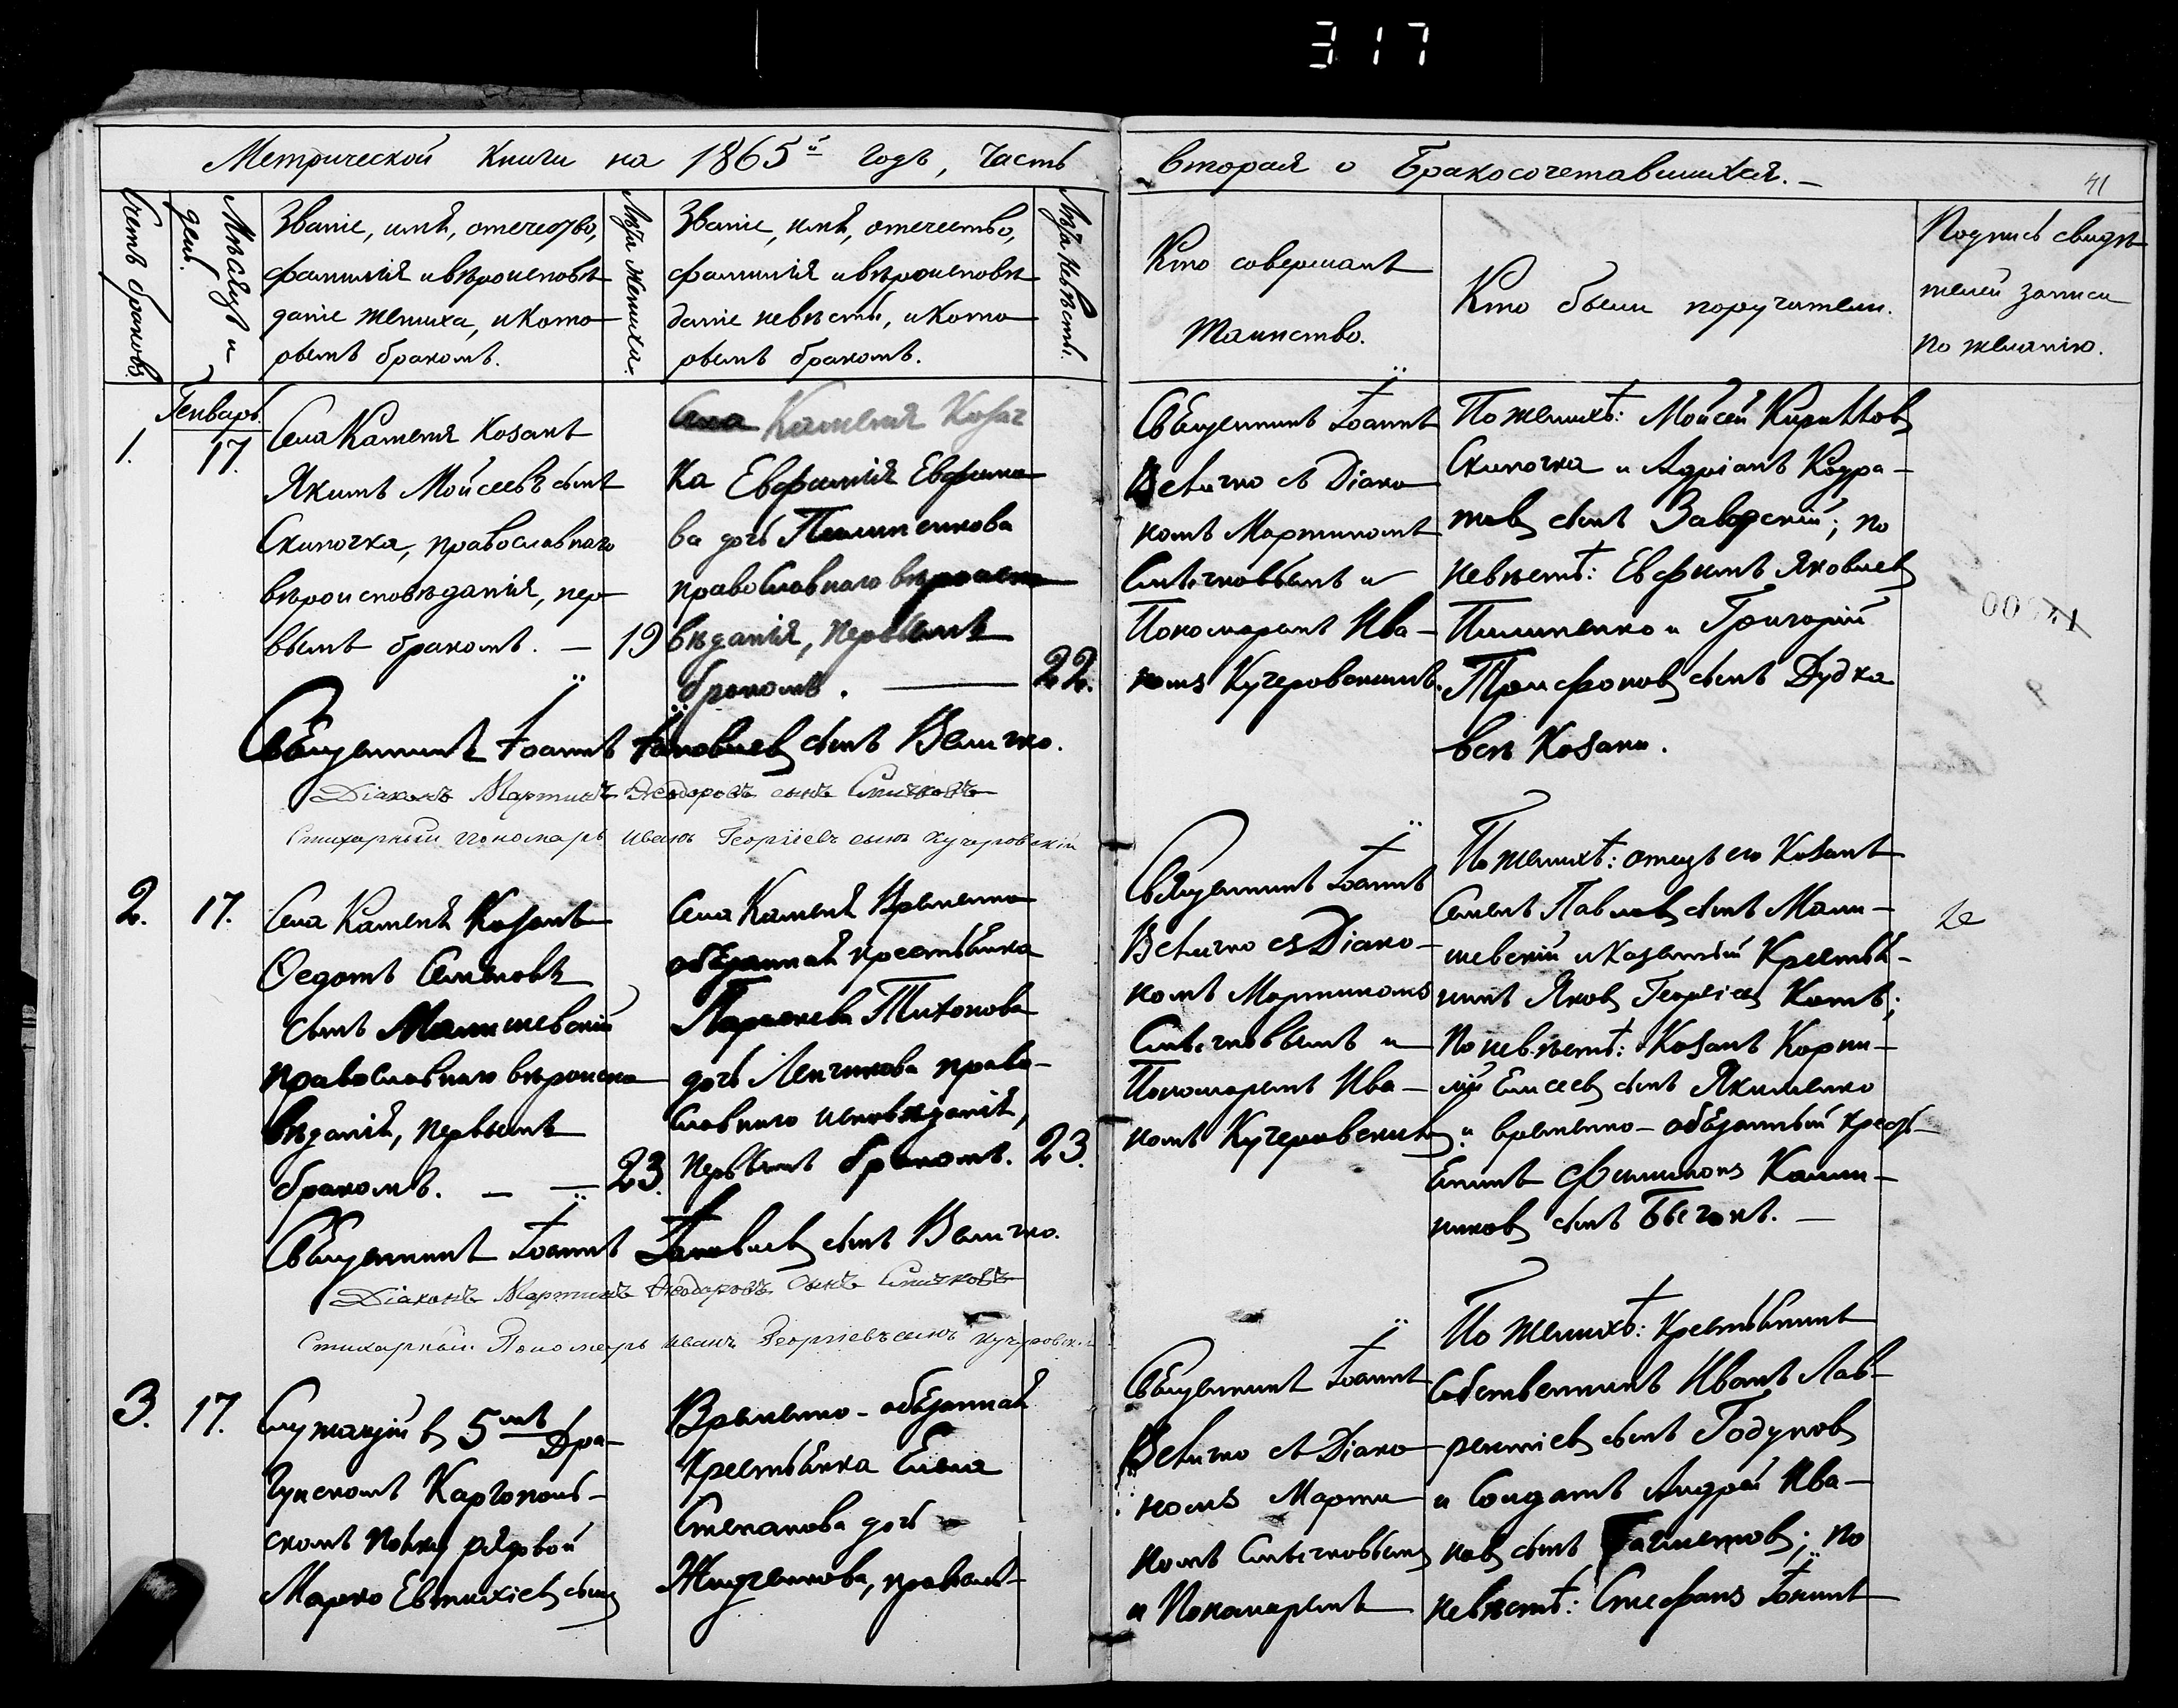 317
Метрической Книги на 1865й годъ, Часть
вторая о Бракосочетавшихся.
41
Счетъ браковъ.
Мѣсяцъ и день.
Званіе, имя, отечество, фамилія и вѣроисповѣ
даніе жениха, и кото
рымъ бракомъ.
Лѣта жениха.
Званіе, имя, отечество,
фамилія и вѣроисповѣ
даніе невѣсты, и кото
рымъ бракомъ.
Лѣта невѣсты.
Кто совершалъ
таинство.
Кто были поручители.
Подпись свидѣ
телей записи
по желанію.
Генварь
1.
17.
Села Каменя Козакъ
Якимъ Мойсеевъ сынъ
Скипочка, православнаго
вѣроисповѣданія, пер
вымъ бракомъ. — 19
Села Каменя Козач
ка Евфимія Евфимо
ва дочь Пилипенкова
православнаго вѣроиспо
вѣданія, первымъ
бракомъ. — 22.
Священникъ Іоаннъ
Величко съ Діако
номъ Мартиномъ
Спичковымъ и
Пономаремъ Ива—
номъ Кучеровскимъ.
По женихѣ: Мойсей Кирилловъ
Скипочка и Адріанъ Кодра—
товъ сынъ Заводскій; по
невѣстѣ: Евфимъ Яковлевъ
Пилипенко и Григорій
Трифоновъ сынъ Дудка
всѣ Козаки.
Священникъ Іоаннъ Іаковлевъ сынъ Величко.
Діаконъ Мартинъ Ѳеодоровъ сынъ Спичковъ
Стихарный пономарь Иванъ Георгіевъ сынъ Кучеровскій
2.
17.
Села Каменя Козакъ
Ѳедотъ Семеновъ
сынъ Малишевскій
православнаго вѣроиспо
вѣданія, первымъ
бракомъ. — — 23.
Села Каменя Временно
обязанная крестьянка
Параскева Тихонова
дочь Ленчикова право—
славнаго исповѣданія,
первымъ бракомъ. 23.
Священникъ Іоаннъ
Величко съ Діако—
номъ Мартиномъ
Спичковымъ и
Пономаремъ Ива—
номъ Кучеровскимъ
По женихѣ: отецъ его Козакъ
Семенъ Павловъ сынъ Мали—
шевскій и Казенный Крестья—
нинъ Яковъ Георгіевъ Котъ;
По невѣстѣ: Козакъ Корни—
лій Елисеевъ сынъ Якименко
и временно-обязанный крест
янинъ Филимонъ Калин—
никовъ сынъ Бычокъ. —
Священникъ Іоаннъ Іаковлевъ сынъ Величко.
Діаконъ Мартинъ Ѳеодоровъ сынъ Спичковъ
Стихарный Пономарь Иванъ Георгіевъ сынъ Кучеровскій
3.
17.
Служащій въ 5мъ Дра—
гунскомъ Каргополь—
скомъ полку рядовой
Марко Евтихіевъ сынъ
Временно-обязанная
Крестьянка Елена
Степанова дочь
Жидченкова, правосл—
Священникъ Іоаннъ
Величко съ Діако—
номъ Марти
номъ Спичковымъ
и Пономаремъ
По женихѣ: крестьянинъ
Собственникъ Иванъ Лав—
рентіевъ сынъ Годуновъ
и Солдатъ Андрей Ива—
новъ сынъ; по
невѣстѣ: Стефанъ